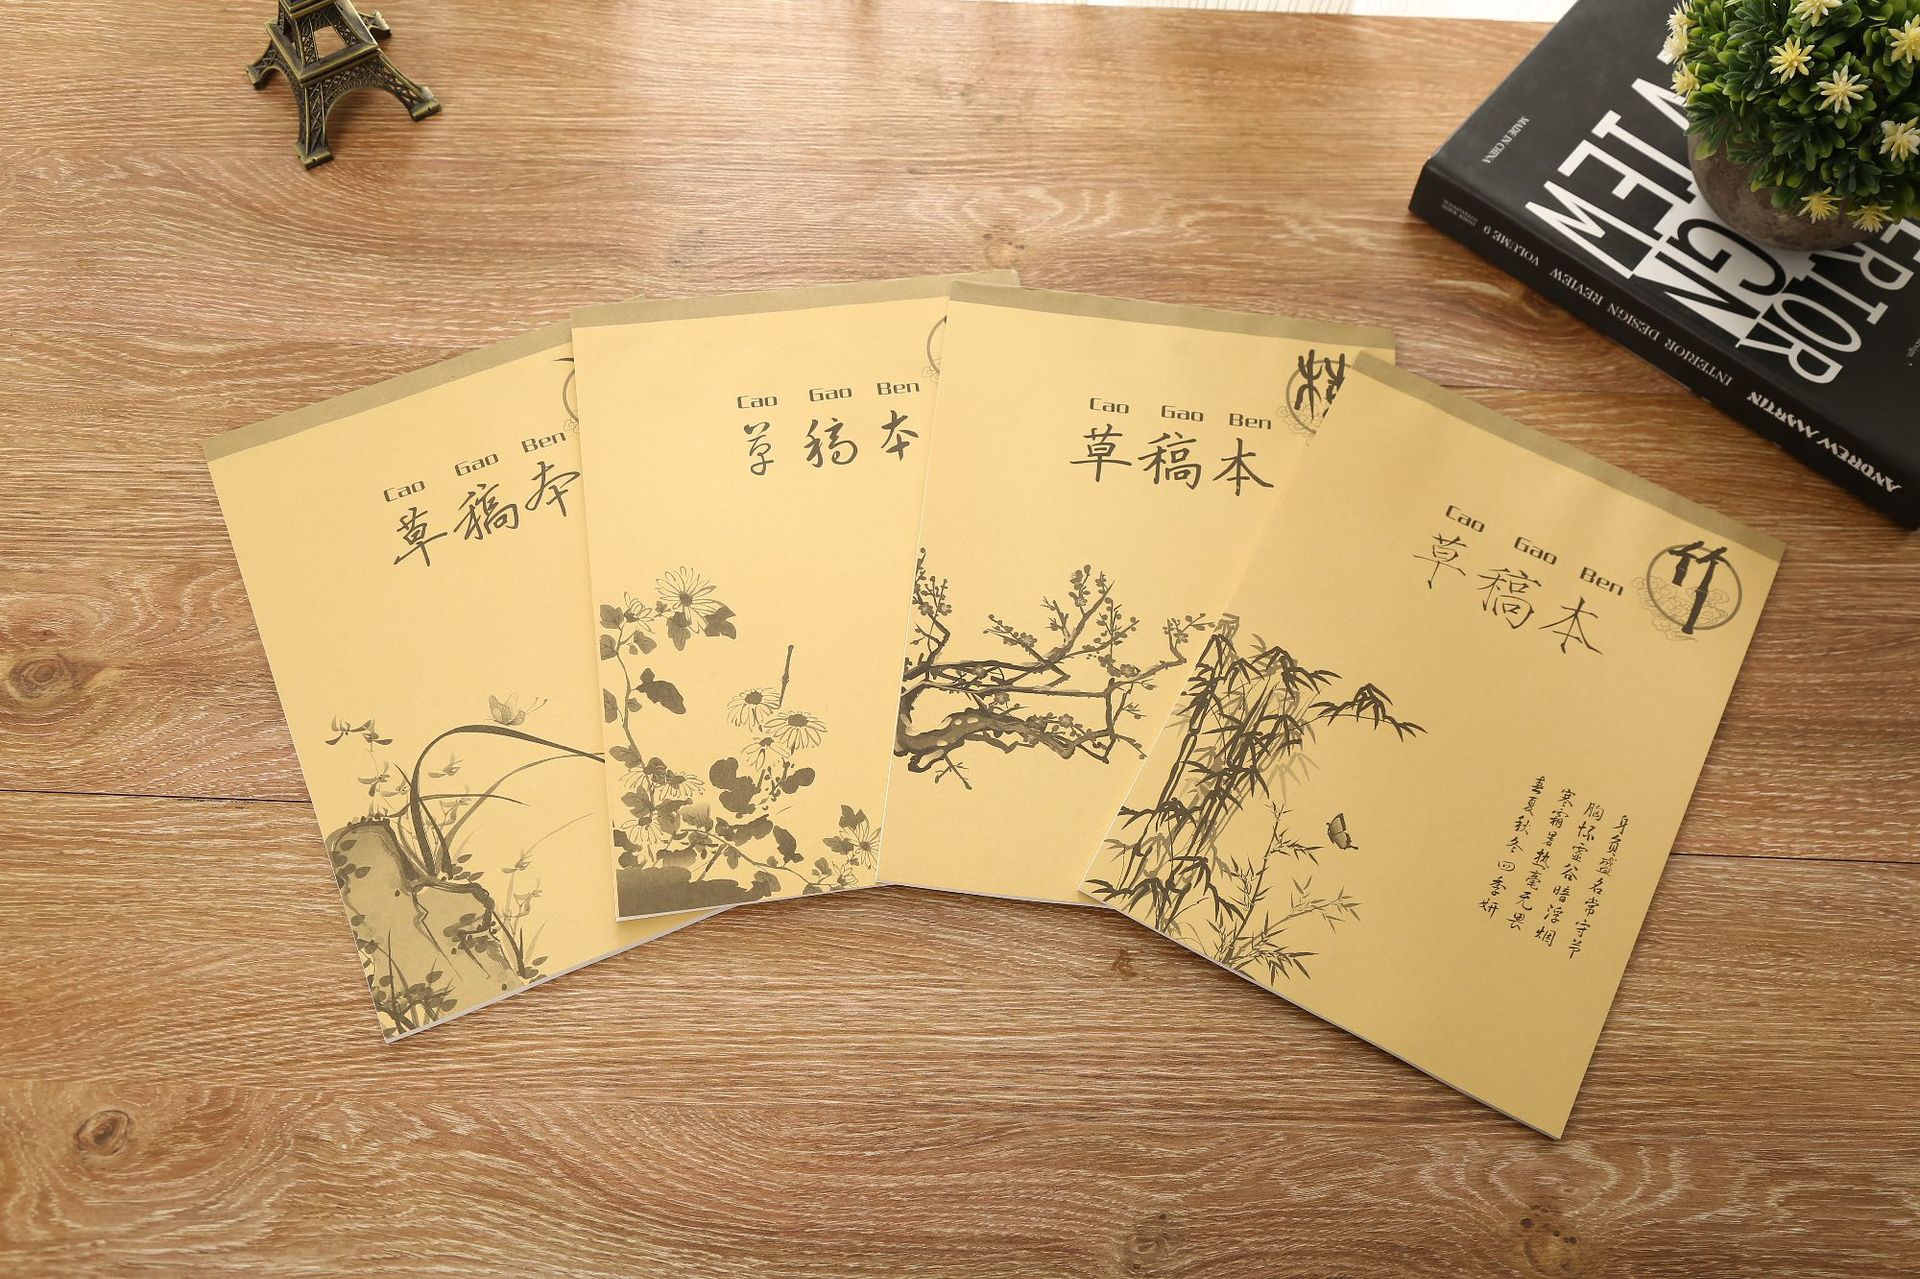 Cao Gao Ben
草稿本
Cao Gao Ben
草稿本
Cao Gao Ben
草稿本
Cao Gao Ben
草稿本
竹
身负盛名常守节
胸怀虚谷暗浮烟
寒霜暑热毫无畏
春夏秋冬四季妍
MADE IN CHINA
VIEW
ANDREW MARTIN INTERIOR DESIGN REVIEW VOLUME 9